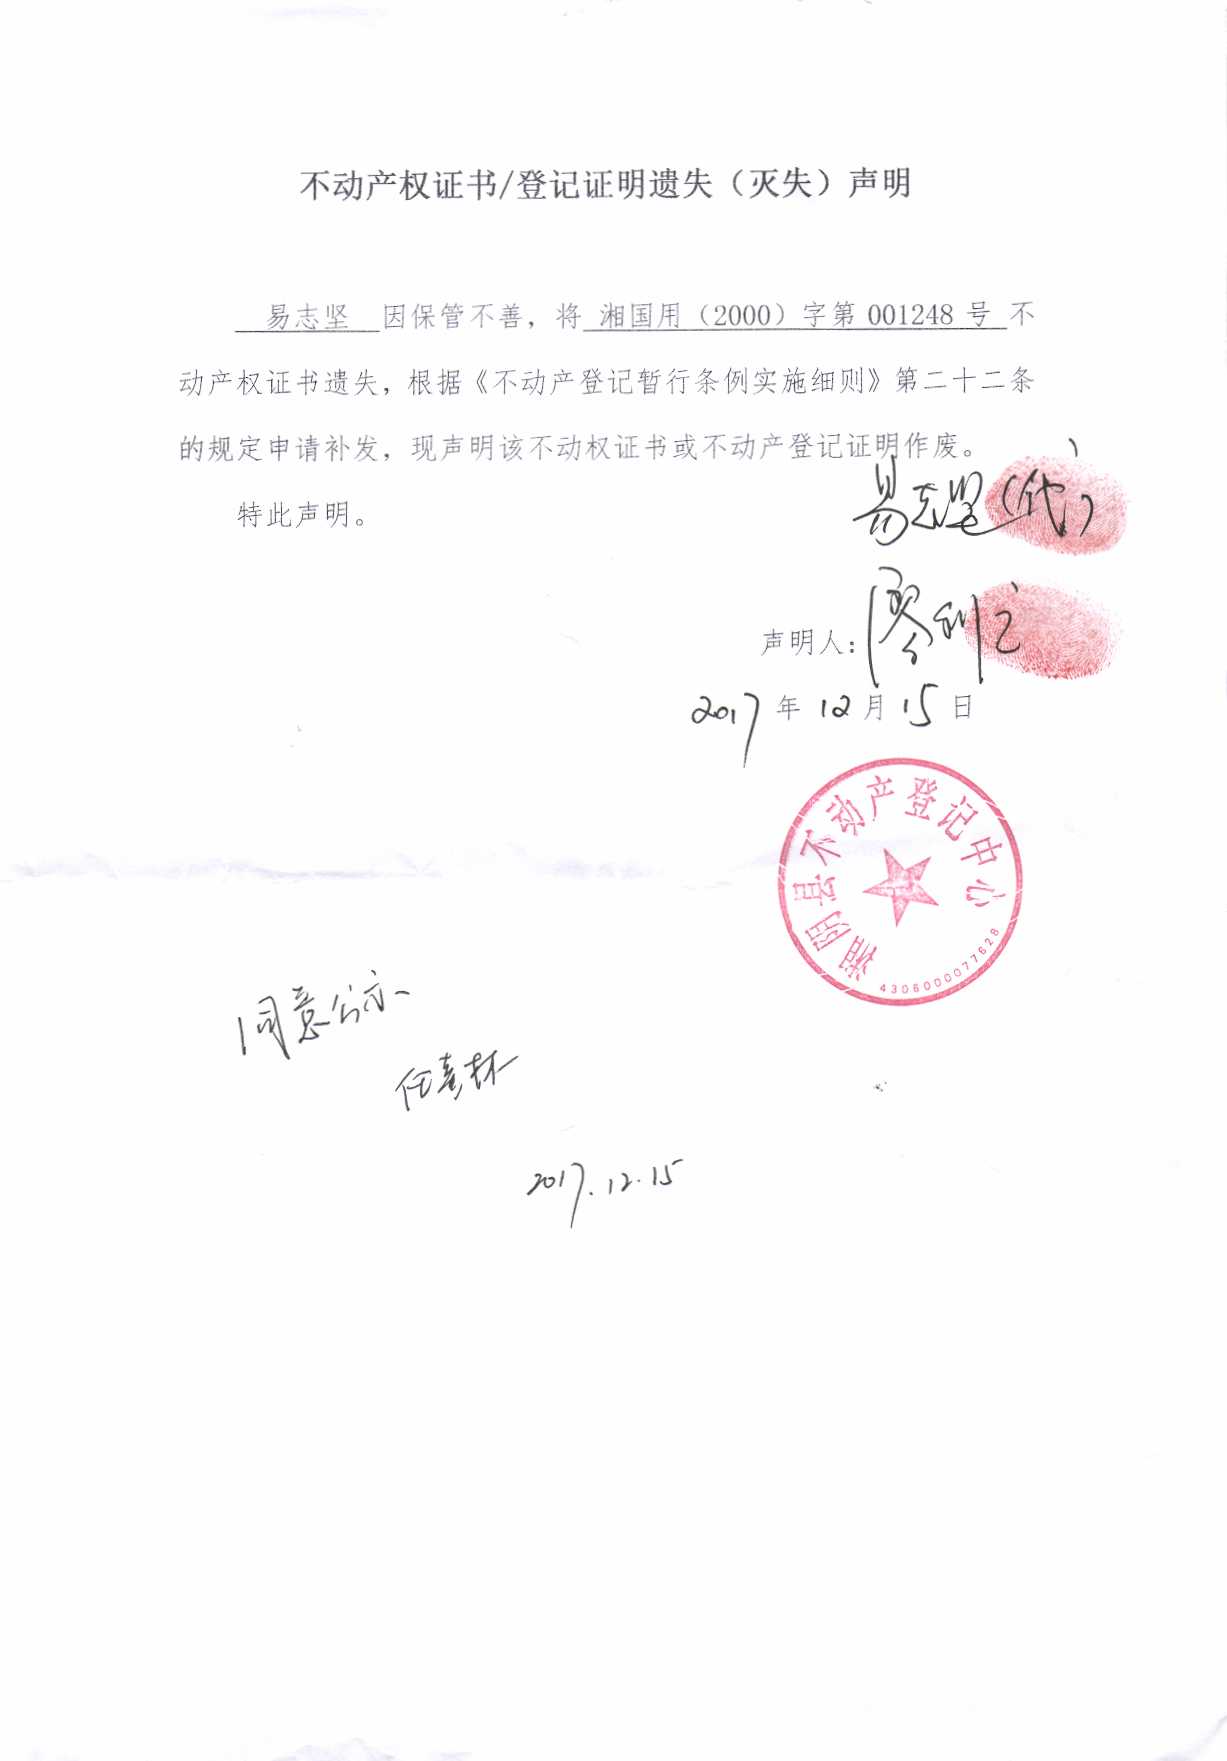 不动产权证书/登记证明遗失（灭失）声明
易志坚 因保管不善，将 湘国用（2000）字第 001248 号 不
动产权证书遗失，根据《不动产登记暂行条例实施细则》第二十二条
的规定申请补发，现声明该不动权证书或不动产登记证明作废。
特此声明。
易志坚（代）
声明人：廖利
2017 年 12 月 15 日
湘阴县不动产登记中心
4306000077628
同意公示
任喜林
2017.12.15